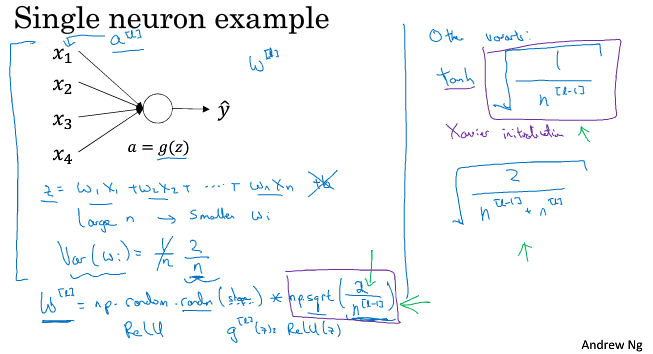 Single neuron example
a^[l]
x₁
x₂
x₃
x₄
ŷ
a = g(z)
w^[l]
z = w₁x₁ + w₂x₂ + ... + wₙxₙ
Large n → Smaller wᵢ
Var(wᵢ) = 1/n 2/n
W^[l] = np.random.randn(shape) * np.sqrt(2/n^[l-1])
ReLU g^[l](z) = ReLU(z)
Other variants:
tanh √(1/n^[l-1])
Xavier initialization
√(2/(n^[l-1] + n^[l]))
Andrew Ng